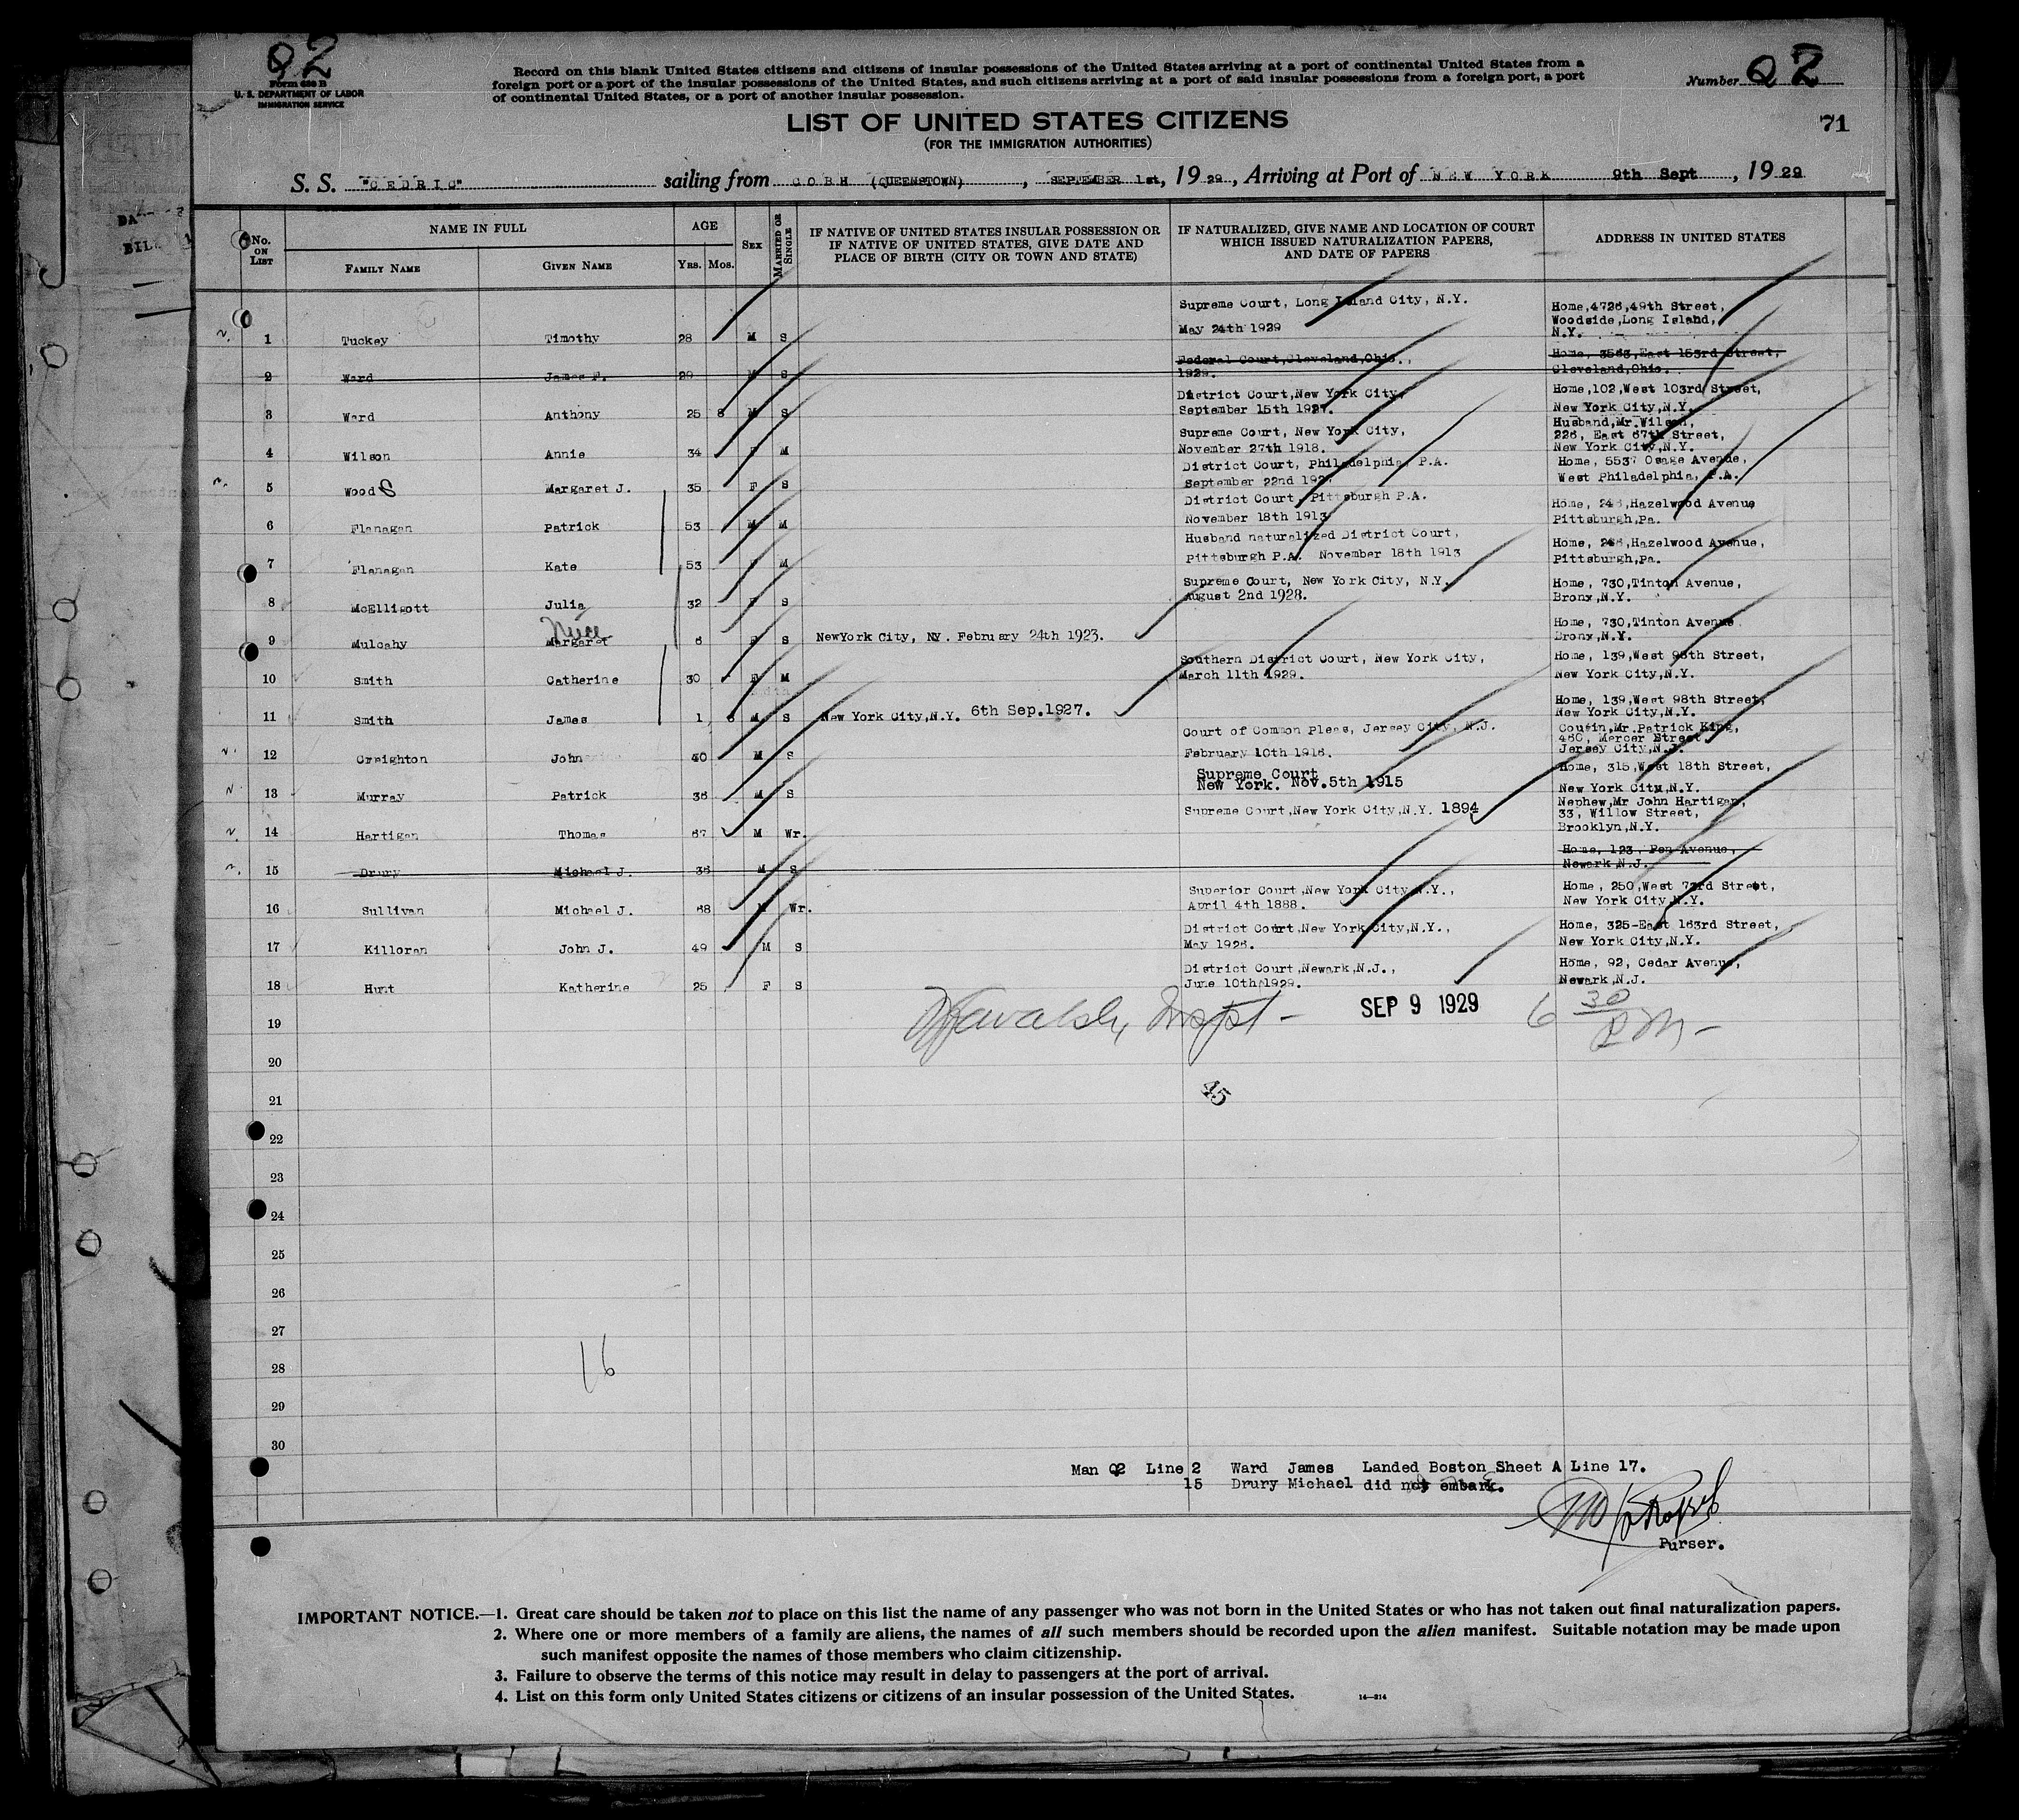 Q2
Form 630 B
U. S. DEPARTMENT OF LABOR
IMMIGRATION SERVICE
Record on this blank United States citizens and citizens of insular possessions of the United States arriving at a port of continental United States from a
foreign port or a port of the insular possessions of the United States, and such citizens arriving at a port of said insular possessions from a foreign port, a port
of continental United States, or a port of another insular possession.
Number Q2
71
LIST OF UNITED STATES CITIZENS
(FOR THE IMMIGRATION AUTHORITIES)
S. S. "CEDRIC" sailing from COBH (QUEENSTOWN), SEPTEMBER 1st, 1929, Arriving at Port of NEW YORK 9th Sept, 1929
No. ON LIST
NAME IN FULL
FAMILY NAME GIVEN NAME
AGE
YRS. MOS.
SEX
MARRIED OR SINGLE
IF NATIVE OF UNITED STATES INSULAR POSSESSION OR
IF NATIVE OF UNITED STATES, GIVE DATE AND
PLACE OF BIRTH (CITY OR TOWN AND STATE)
IF NATURALIZED, GIVE NAME AND LOCATION OF COURT
WHICH ISSUED NATURALIZATION PAPERS,
AND DATE OF PAPERS
ADDRESS IN UNITED STATES
1 Tuckey Timothy 28 M S Supreme Court, Long Island City, N.Y. May 24th 1929 Home,4726,49th Street, Woodside,Long Island, N.Y.
2 Ward James F. 29 M S Federal Court,Cleveland,Ohio., 1929. Home, 3563,East 153rd Street, Cleveland,Ohio.
3 Ward Anthony 25 8 M S District Court,New York City, September 15th 1927. Home,102,West 103rd Street, New York City,N.Y.
4 Wilson Annie 34 F M Supreme Court, New York City, November 27th 1918. Husband,Mr.Wilson, 226, East 67th Street, New York City,N.Y.
5 Woods Margaret J. 35 F S District Court, Philadelphia, P.A. September 22nd Home, 5537 Osage Avenue, West Philadelphia, P.A.
6 Flanagan Patrick 53 M M District Court, Pittsburgh P.A. November 18th 1913 Home, Hazelwood Avenue Pittsburgh,Pa.
7 Flanagan Kate 53 F M Husband naturalized District Court, Pittsburgh P.A. November 18th 1913 Home, Hazelwood Avenue, Pittsburgh,Pa.
8 McElligott Julia 32 F S Supreme Court, New York City, N.Y. August 2nd 1928. Home, 730,Tinton Avenue, Bronx,N.Y.
Niece
9 Mulcahy Margaret 6 F S NewYork City, NY. February 24th 1923. Home, 730,Tinton Avenue Bronx,N.Y.
10 Smith Catherine 30 F M Southern District Court, New York City, March 11th 1929. Home, 139,West 98th Street, New York City,N.Y.
11 Smith James 1 M S New York City,N.Y. 6th Sep.1927. Home, 139,West 98th Street, New York City,N.Y.
12 Creighton John 40 M S Court of Common Pleas, Jersey City, N.J. February 10th 1918. Cousin,Mr.Patrick King, 460, Mercer Street, Jersey City,N.J.
13 Murray Patrick 38 M S Supreme Court New York. Nov.5th 1915 Home, 315,West 18th Street, New York City,N.Y.
14 Hartigan Thomas 67 M Wr. Supreme Court,New York City,N.Y. 1894 Nephew,Mr John Hartigan, 33, Willow Street, Brooklyn,N.Y.
15 Drury Michael J. 36 M S Home, 123, Pen Avenue, Newark N.J.
16 Sullivan Michael J. 68 M Wr. Superior Court,New York City,N.Y., April 4th 1888. Home, 250,West 73rd Street, New York City,N.Y.
17 Killoran John J. 49 M S District Court,New York City,N.Y., May 1926. Home, 325-East 163rd Street, New York City,N.Y.
18 Hunt Katherine 25 F S District Court,Newark,N.J., June 10th 1929. Home, 92, Cedar Avenue, Newark,N.J.
Inspt - SEP 9 1929 6 30 PM -
19
20
45
21
22
23
24
25
26
27
16
28
29
30
Man Q2 Line 2 Ward James Landed Boston Sheet A Line 17.
15 Drury Michael did not embark.
Purser.
IMPORTANT NOTICE.—1. Great care should be taken not to place on this list the name of any passenger who was not born in the United States or who has not taken out final naturalization papers.
2. Where one or more members of a family are aliens, the names of all such members should be recorded upon the alien manifest. Suitable notation may be made upon
such manifest opposite the names of those members who claim citizenship.
3. Failure to observe the terms of this notice may result in delay to passengers at the port of arrival.
4. List on this form only United States citizens or citizens of an insular possession of the United States. 14—214